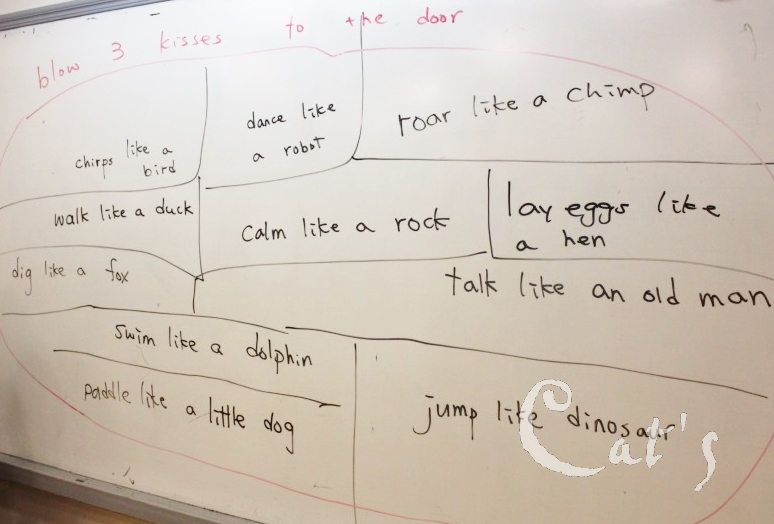 blow 3 kisses to the door
chirps like a
bird
dance like
a robot
roar like a chimp
walk like a duck
calm like a rock
lay eggs like
a hen
dig like a fox
talk like an old man
swim like a dolphin
paddle like a little dog
jump like dinosaur
Cat's